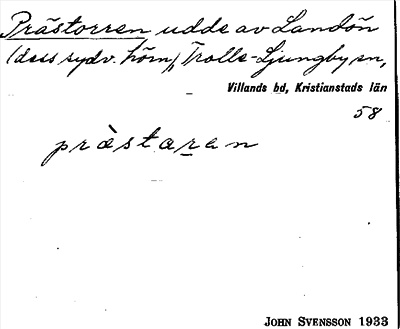 Prästorren udde av Landön
(dess sydv. hörn), Trolle-Ljungby sn,
Villands hd, Kristianstads län
58
prästaren
JOHN SVENSSON 1933